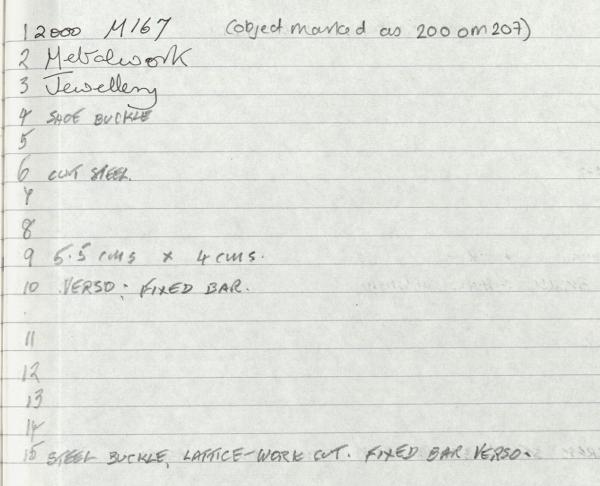 1 2000 M167 (object marked as 200 om 207)
2 Metalwork
3 Jewellery
4 SHOE BUCKLE
5
6 CUT STEEL.
7
8
9 5.5 cms x 4 cms.
10 VERSO: FIXED BAR.
11
12
13
14
15 STEEL BUCKLE, LATTICE-WORK CUT. FIXED BAR VERSO.